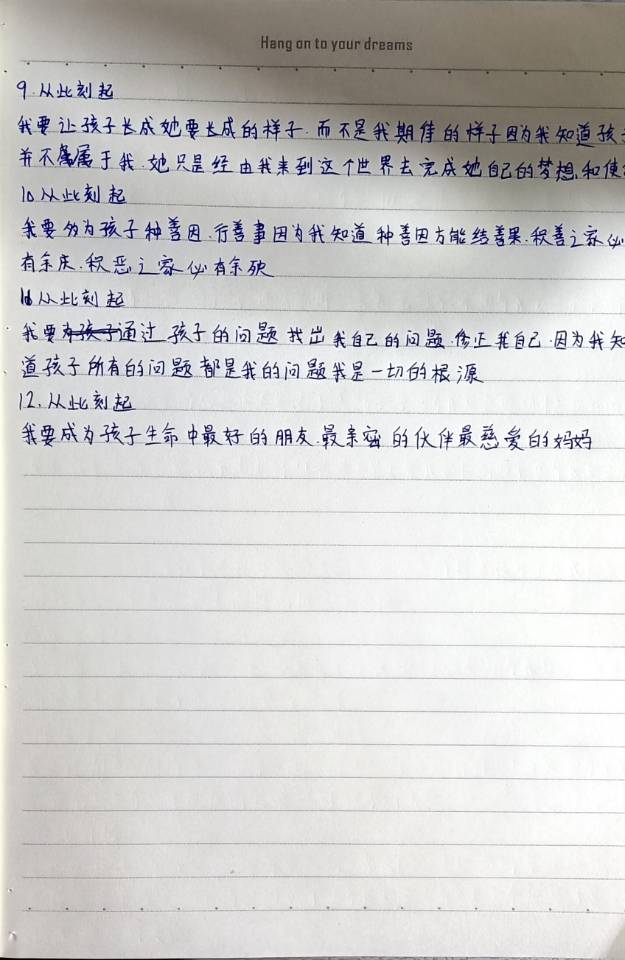 Hang on to your dreams
9.从此刻起
我要让孩子长成她要长成的样子.而不是我期待的样子因为我知道孩子
并不属属于我.她只是经由我来到这个世界去完成她自己的梦想.和使
10从此刻起
我要多为孩子种善因.行善事因为我知道种善因方能结善果.积善之家必
有余庆.积恶之家必有余殃
11从此刻起
我要为孩子通过孩子的问题找出我自己的问题.修正我自己.因为我知
道孩子所有的问题都是我的问题我是一切的根源
12.从此刻起
我要成为孩子生命中最好的朋友.最亲密的伙伴最慈爱的妈妈